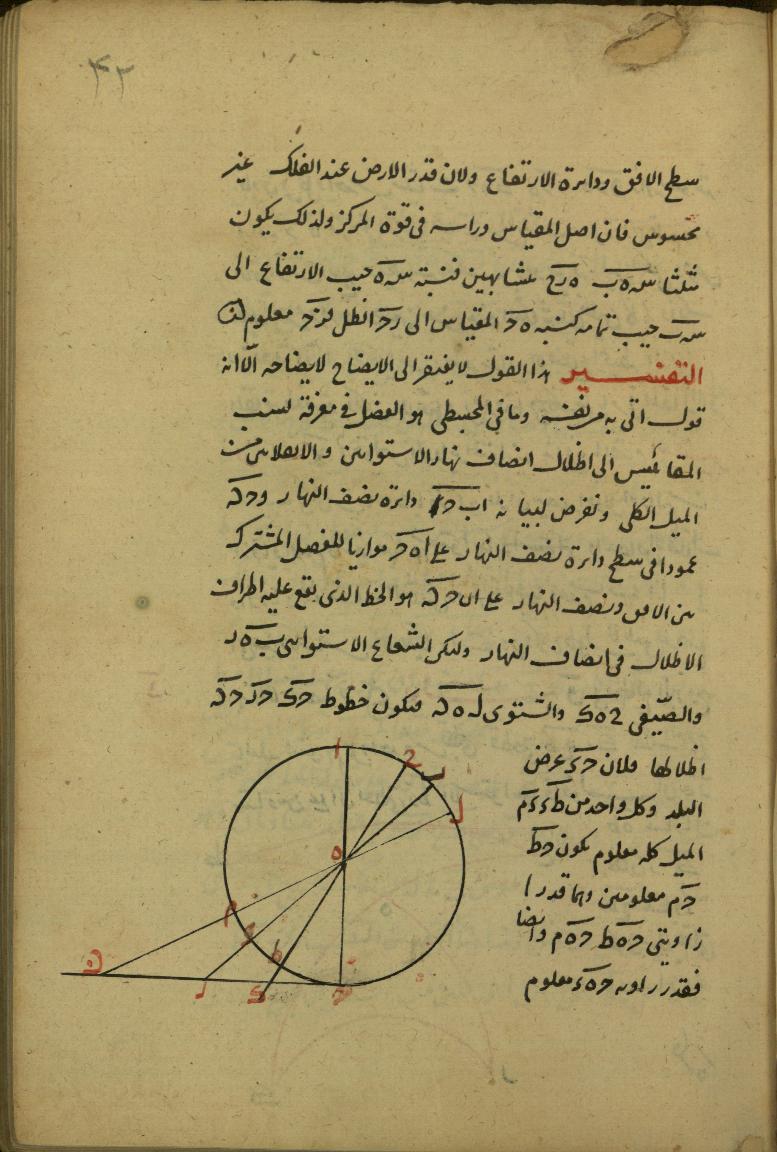 ٤٣
سطح الافق ودايرة الارتفاع ولان قدر الارض عند الفلك غير
محسوس فان اصل المقياس وراسه فى قوة المركز ولذلك يكون
مثلثا سه ه ب ه رح متشابهين فنسبة سه ه جيب الارتفاع الى
سه ب جيب تمامه كنسبة ه ح المقياس الى رح الظل فرح معلوم
التفسير هذا القول لا يفتقر الى الايضاح لايضاحه الا انه
قول اتى به من نفسه وما فى المجسطى هو العضل فى معرفة نسب
المقائيس الى اظلال انصاف نهار الاستوائين والانقلابين من
الميل الكلى ونفرض لبيانه اب ح دائرة نصف النهار و ح ك
عمودا فى سطح دايرة نصف النهار على ا ه ح موازيا للفصل المشترك
بين الافق ونصف النهار على ان ح ك هو الخط الذى يقع عليه اطراف
الاظلال فى انصاف النهار وليكن الشعاع الاستوائى ب ه ر
والصيفى ه ك والشتوى ل ه ن فيكون خطوط ح ك ح ر ح ن
اظلالها فلان ح ء عرض
البلد وكل واحد من ط ء ء م
الميل كله معلوم يكون ح ط
ح م معلومين وهما قدرا
زاويتى ح ه ط ح ه م وايضا
فقدر زاويه ح ه ء معلوم
ا
ب
ل
ه
م
ط
ح
ك
ر
ن